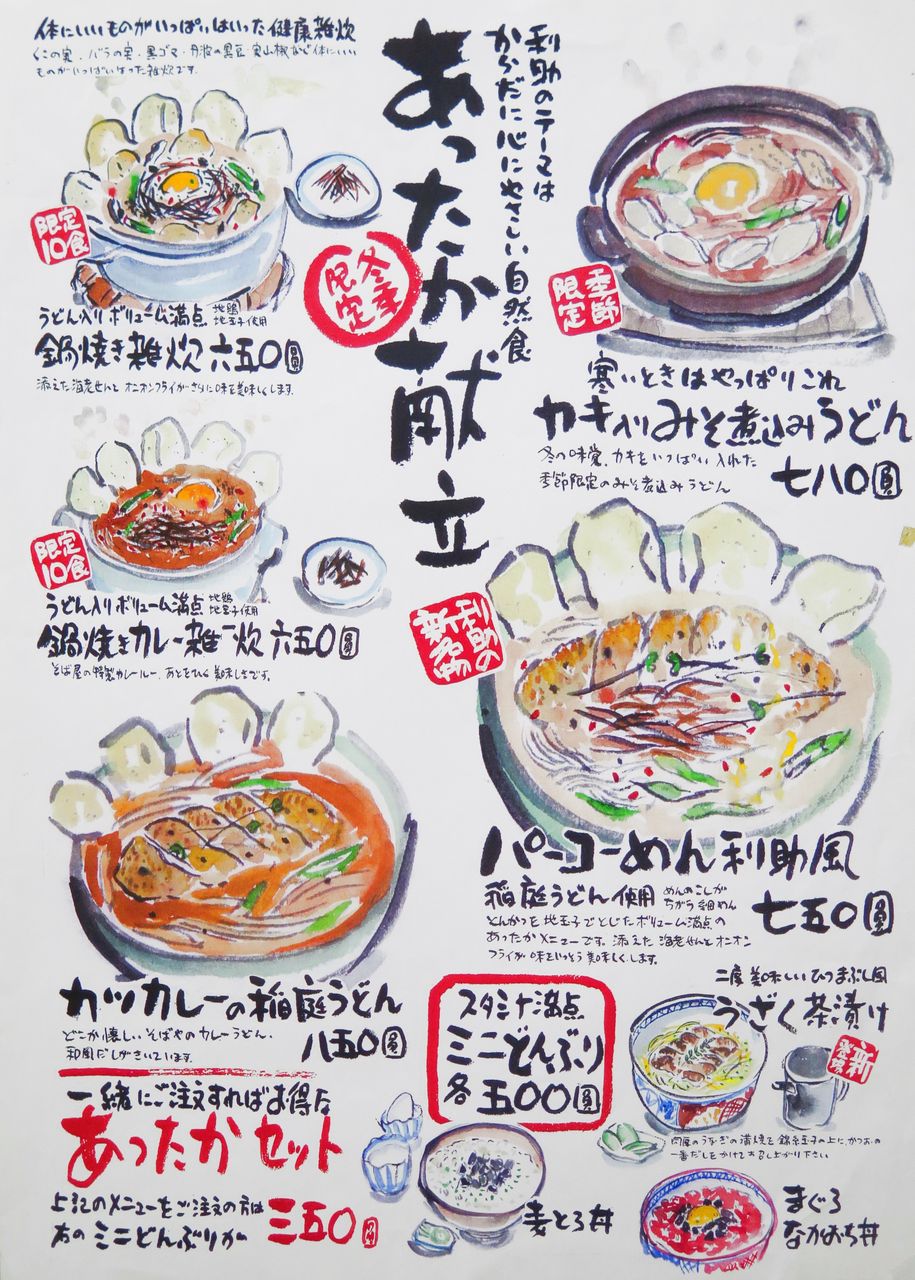 利助のテーマは
からだに心にやさしい自然食
あったか献立
冬季
限定
体にいいものがいっぱいはいった健康雑炊
くこの実、バラの実・黒ゴマ・丹波の黒豆・実山椒など体にいい
ものがいっぱいはいった雑炊です。
限定
10食
うどん入りボリューム満点 地鶏
地玉子使用
鍋焼き雑炊 六五〇圓
添えた海老せんとオニオンフライがさらに味を美味しくします。
限定
10食
うどん入りボリューム満点 地鶏
地玉子使用
鍋焼きカレー雑炊 六五〇圓
そば屋の特製カレールー、あとをひく美味しさです。
カツカレーの稲庭うどん
どこか懐しいそばやのカレーうどん。
和風だしがきいています。
八五〇圓
季節
限定
寒いときはやっぱりこれ
カキ入りみそ煮込みうどん
冬の味覚、カキをいっぱい入れた
季節限定のみそ煮込みうどん
七八〇圓
利助の
新名物
パーコーめん利助風
稲庭うどん使用 めんのこしが
ちがう細めん
とんかつを地玉子でとじたボリューム満点の
あったかメニューです。添えた海老せんとオニオン
フライが味をいっそう美味しくします。
七五〇圓
一緒にご注文すればお得な
あったかセット
上記のメニューをご注文の方は
右のミニどんぶりが
三五〇圓
スタミナ満点
ミニどんぶり
各五〇〇圓
二度美味しいひつまぶし風
うざく茶漬け
新
登場
肉厚のうなぎの蒲焼を錦糸玉子の上に、かつおの
一番だしをかけてお召し上がり下さい
麦とろ丼
まぐろ
なかおち丼